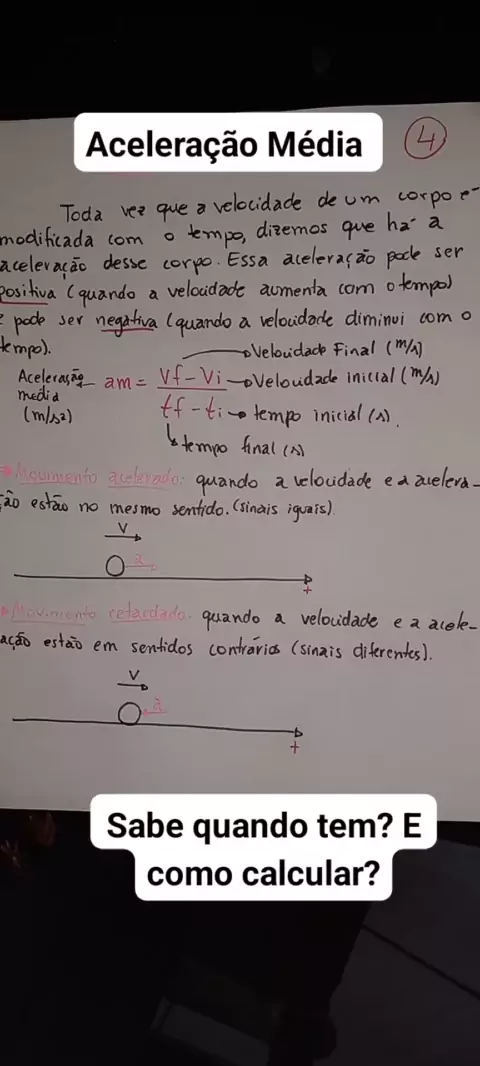 Aceleração Média
4
Toda vez que a velocidade de um corpo é
modificada com o tempo, dizemos que há a
aceleração desse corpo. Essa aceleração pode ser
positiva (quando a velocidade aumenta com o tempo)
e pode ser negativa (quando a velocidade diminui com o
tempo).
Velocidade Final (m/s)
Aceleração média (m/s2) am = Vf - Vi Velocidade inicial (m/s)
tf - ti tempo inicial (s).
tempo final (s)
Movimento acelerado: quando a velocidade e a acelera-
ção estão no mesmo sentido. (sinais iguais).
V
a
+
Movimento retardado. quando a velocidade e a acele-
ação estão em sentidos contrários (sinais diferentes).
V
a
+
Sabe quando tem? E
como calcular?